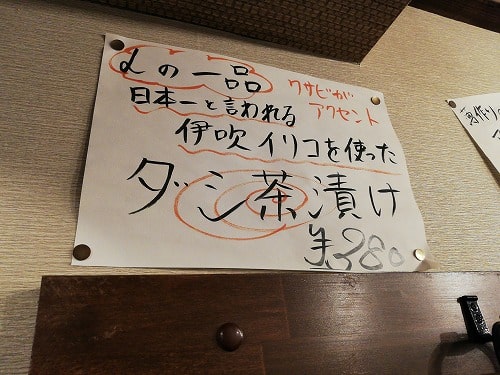 〆の一品
ワサビが
アクセント
日本一と言われる
伊吹イリコを使った
ダッシ茶漬け
¥380